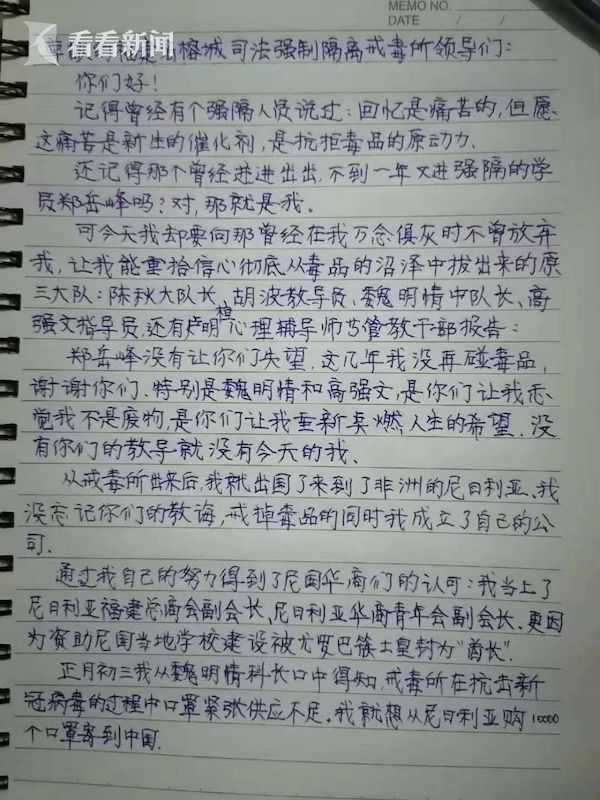 MEMO NO.
DATE / /
看看新闻
榕城司法强制隔离戒毒所领导们:
你们好!
记得曾经有个强隔人员说过:回忆是痛苦的,但愿
这痛苦是新生的催化剂,是抗拒毒品的原动力.
还记得那个曾经进进出出,不到一年又进强隔的学
员郑岳峰吗?对,那就是我。
可今天我却要向那曾经在我万念俱灰时不曾放弃
我,让我能重拾信心彻底从毒品的沼泽中拔出来的原
三大队:陈秋大队长、胡波教导员、魏明情中队长、高
强文指导员,还有卢明 心理辅导师与管教干部报告:
郑岳峰没有让你们失望,这几年我没再碰毒品,
谢谢你们.特别是魏明情和高强文,是你们让我感
觉我不是废物,是你们让我重新点燃人生的希望.没
有你们的教导就没有今天的我、
从戒毒所出来后,我就出国了来到了非洲的尼日利亚、我
没忘记你们的教诲,戒掉毒品的同时我成立了自己的公
司.
通过我自己的努力得到了尼国华商们的认可:我当上了
尼日利亚福建总商会副会长、尼日利亚华商青年会副会长、更因
为资助尼国当地学校建设被尤罗巴族土皇封为“酋长”.
正月初三我从魏明情科长口中得知,戒毒所在抗击新
冠病毒的过程中口罩紧张供应不足。我就想从尼日利亚购10000
个口罩寄到中国.